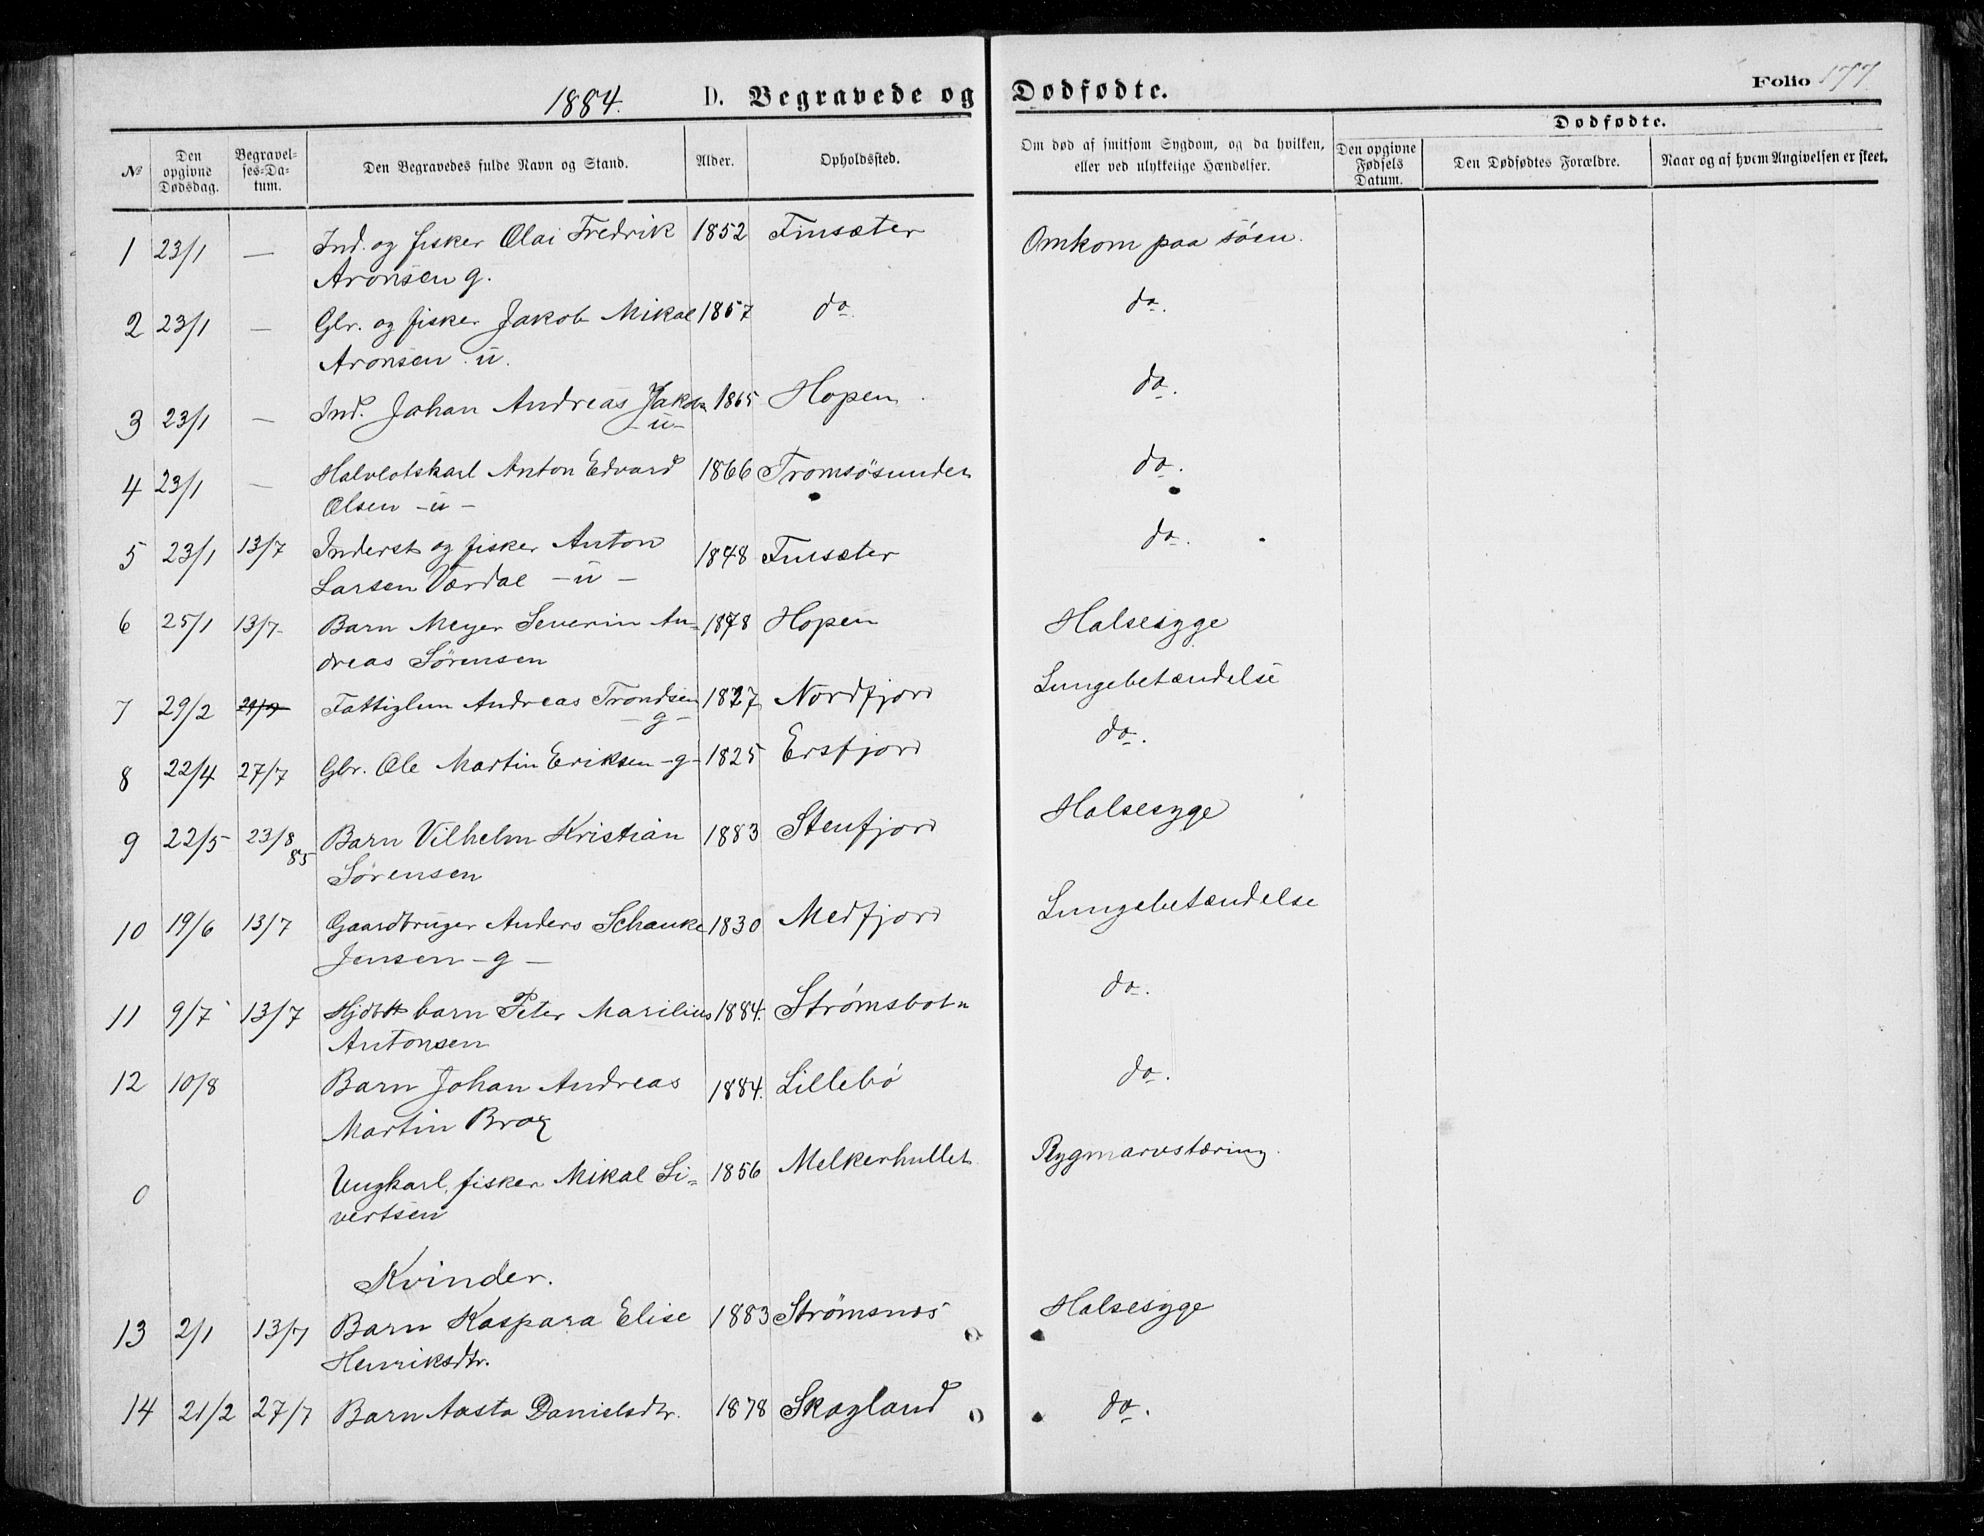 1884. D. Begravede og Dødfødte. Folio 177
№ Den opgivne Dødsdag. Begravel-ses-Da-tum. Den Begravedes fulde Navn og Stand. Alder. Opholdssted. Om død af smitsom Sygdom, og da hvilken, eller ved ulykkelige Hændelser. Dødfødte. Den opgivne Fødsels Datum. Den Dødfødtes Forældre. Naar og af hvem Angivelsen er skeet.
1 23/1 — Ind. og fisker Olai Fredrik 1852 Finsæter Omkom paa søen.
Aronsen g.
2 23/1 — Gbr. og fisker Jakob Mikal 1857 do do.
Aronsen u.
3 23/1 — Ind. Johan Andreas Jakobs 1865 Hopen do.
-u-
4 23/1 — Halvlotskarl Anton Edvard 1866 Tromsøsundet do.
Olsen -u-
5 23/1 13/7 Inderst og fisker Anton 1848 Finsæter do.
Larsen Værdal -u-
6 25/1 13/7 Barn Meyer Severin An- 1878 Hopen Halsesyge
dreas Sørensen
7 29/2 Fattiglem Andreas Trondsen 1827 Nordfjord Lungebetændelse
-g-
8 22/4 27/7 Gbr. Ole Martin Eriksen -g- 1825 Ersfjord do.
9 22/5 23/8 85 Barn Vilhelm Kristian 1883 Stenfjord Halsesyge
Sørensen
10 19/6 13/7 Gaardbruger Anders Schanke 1830 Medfjord Lungebetændelse
Jensen -g-
11 9/7 13/7 Hjdbt barn Peter Marilius 1884. Strømsbotn do.
Antonsen
12 10/8 Barn Johan Andreas 1884. Lillebø do.
Martin Brox
0 Ungkarl, fisker Mikal Si- 1856 Melkerhullet Rygmarvstæring.
vertsen
Kvinder.
13 2/1 13/7 Barn Kaspara Elise 1883 Strømsnæs Halsesyge
Henriksdtr.
14 21/2 27/7 Barn Aasta Danielsdtr. 1878 Skogland do.